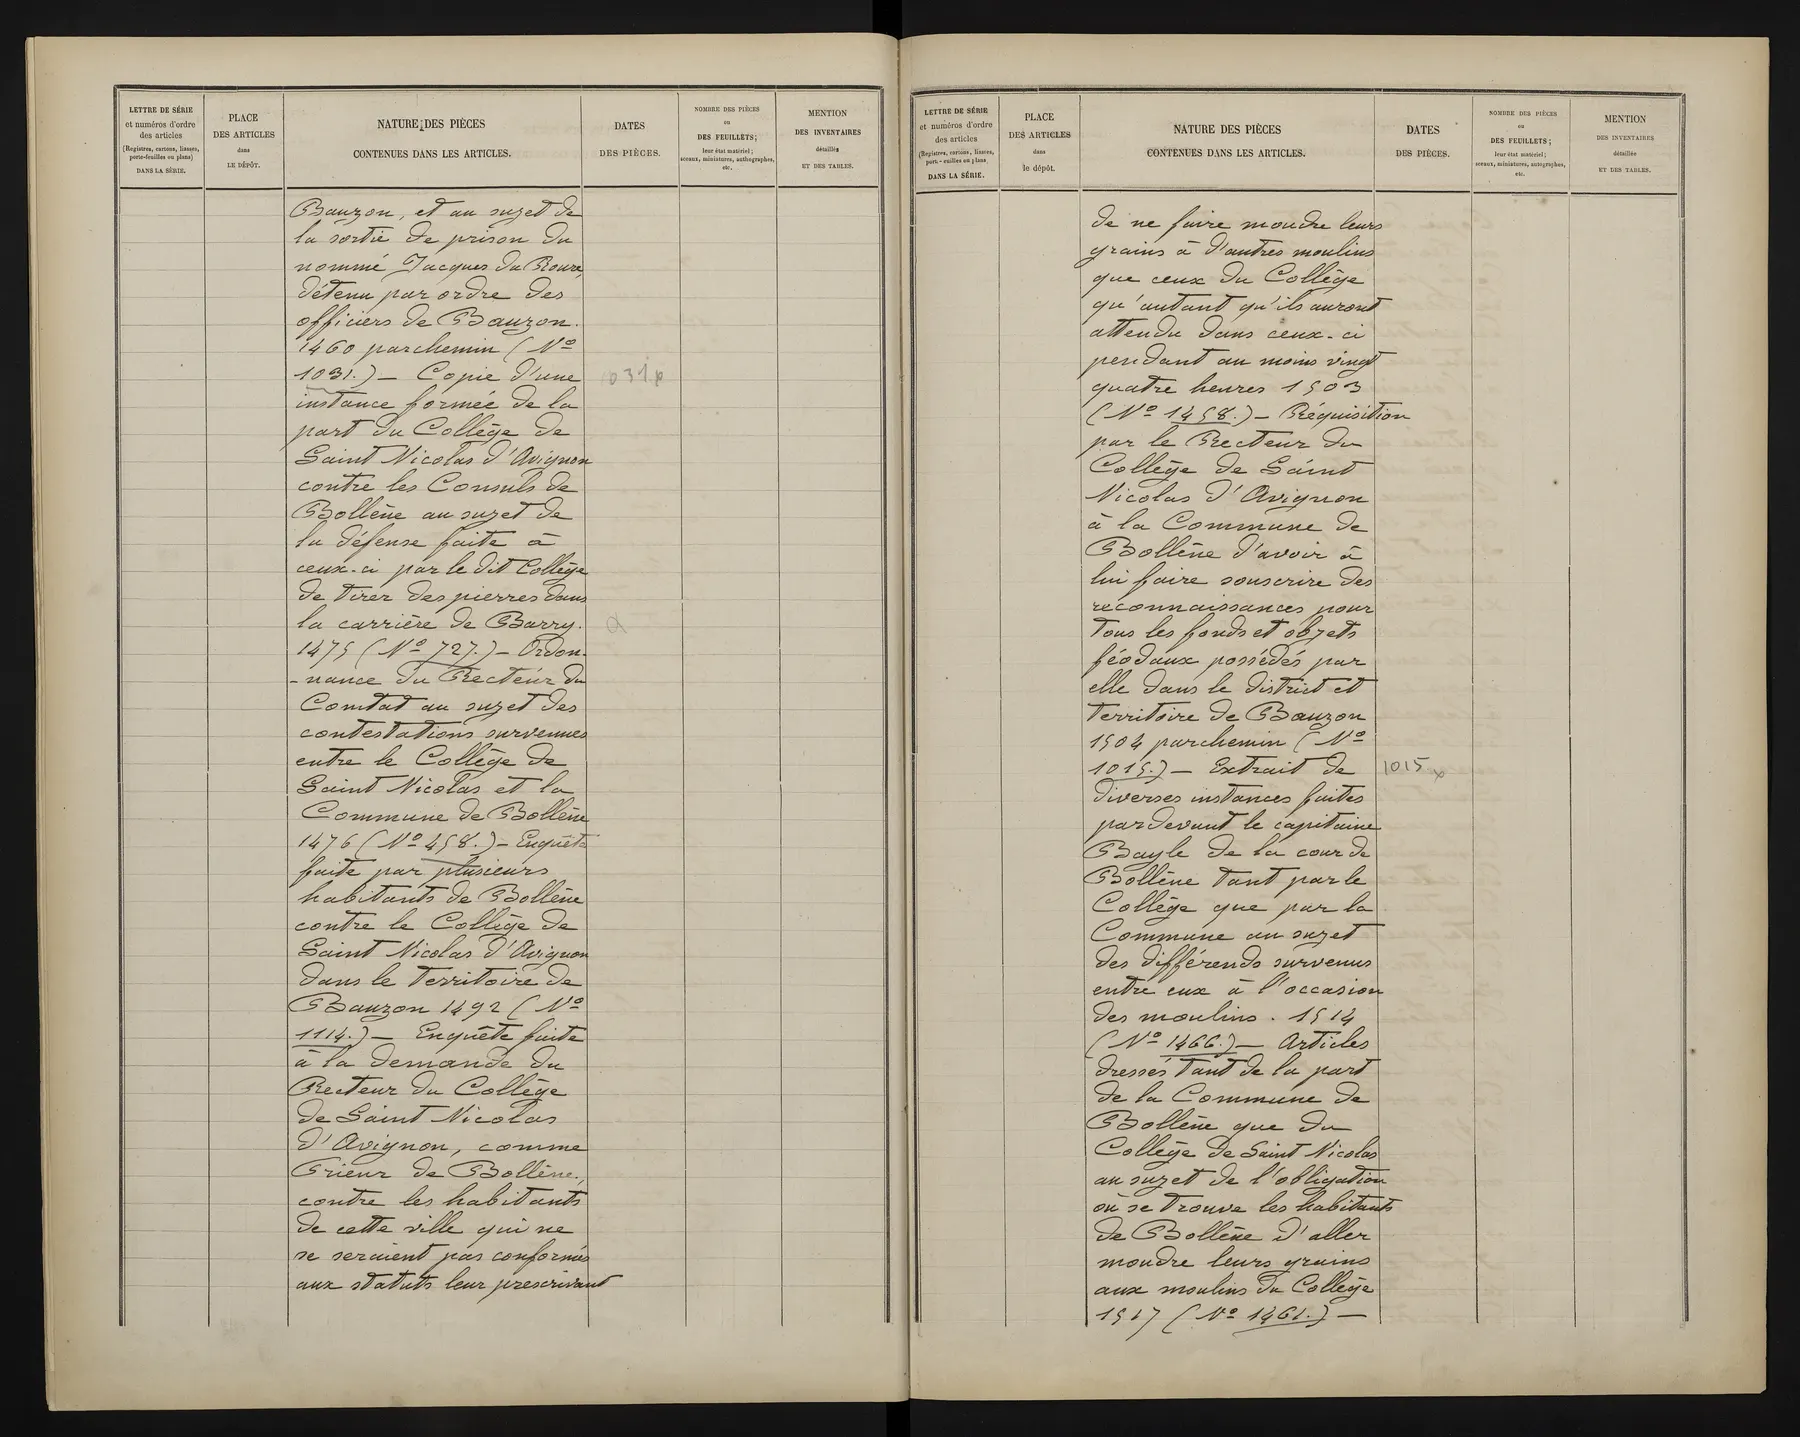 LETTRE DE SÉRIE
et numéros d'ordre
des articles
(Registres, cartons, liasses,
porte-feuilles ou plans)
DANS LA SÉRIE.
PLACE
DES ARTICLES
dans
LE DÉPÔT.
NATURE DES PIÈCES
CONTENUES DANS LES ARTICLES.
DATES
DES PIÈCES.
NOMBRE DES PIÈCES
ou
DES FEUILLETS;
leur état matériel;
sceaux, miniatures, authographes,
etc.
MENTION
DES INVENTAIRES
détaillés
ET DES TABLES.
Bauzon, et au sujet de
la sortie de prison du
nommé Jacques du Roure,
détenu par ordre des
officiers de Bauzon.
1460 parchemin (Nº
1031.) — Copie d'une
1031 x
instance formée de la
part du Collège de
Saint Nicolas d'Avignon
contre les Consuls de
Bollène au sujet de
la défense faite à
ceux-ci par le dit Collège
de tirer des pierres dans
la carrière de Barry.
1475 (Nº 727.) — Ordon-
-nance du Recteur du
Comtat au sujet des
contestations survenues
entre le Collège de
Saint Nicolas et la
Commune de Bollène
1476 (Nº 458.) — Enquête
faite par plusieurs
habitants de Bollène
contre le Collège de
Saint Nicolas d'Avignon
dans le territoire de
Bauzon 1492 (Nº
1114.) — Enquête faite
à la demande du
Recteur du Collège
de Saint Nicolas
d'Avignon, comme
Prieur de Bollène,
contre les habitants
de cette ville qui ne
se seraient pas conformés
aux statuts leur prescrivant
LETTRE DE SÉRIE
et numéros d'ordre
des articles
(Registres, cartons, liasses,
porte-feuilles ou plans)
DANS LA SÉRIE.
PLACE
DES ARTICLES
dans
le dépôt.
NATURE DES PIÈCES
CONTENUES DANS LES ARTICLES.
DATES
DES PIÈCES.
NOMBRE DES PIÈCES
ou
DES FEUILLETS;
leur état matériel;
sceaux, miniatures, autographes,
etc.
MENTION
DES INVENTAIRES
détaillés
ET DES TABLES.
de ne faire moudre leurs
grains à d'autres moulins
que ceux du Collège
qu'autant qu'ils auront
attendu dans ceux-ci
pendant au moins vingt
quatre heures 1503
(Nº 1458.) — Réquisition
par le Recteur du
Collège de Saint
Nicolas d'Avignon
à la Commune de
Bollène d'avoir à
lui faire souscrire des
reconnaissances pour
tous les fonds et objets
féodaux possédés par
elle dans le district et
territoire de Bauzon
1504 parchemin (Nº
1015.) — Extrait de
1015 x
diverses instances faites
pardevant le capitaine
Bayle de la cour de
Bollène tant par le
Collège que par la
Commune au sujet
des différends survenus
entre eux à l'occasion
des moulins. 1514
(Nº 1466.) — Articles
dressés tant de la part
de la Commune de
Bollène que du
Collège de Saint Nicolas
au sujet de l'obligation
où se trouve les habitants
de Bollène d'aller
moudre leurs grains
aux moulins du Collège
1517 (Nº 1461.) —